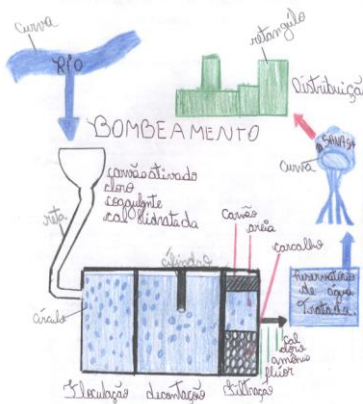 curva
RIO
retângulo
Distribuição
BOMBEAMENTO
SANASA
curva
carvão ativado
cloro
coagulante
cal hidratada
reta
carvão
areia
cascalho
cilindro
círculo
reservatório
de água
Tratada.
cal
cloro
amônia
flúor
Floculação
decantação
Filtração